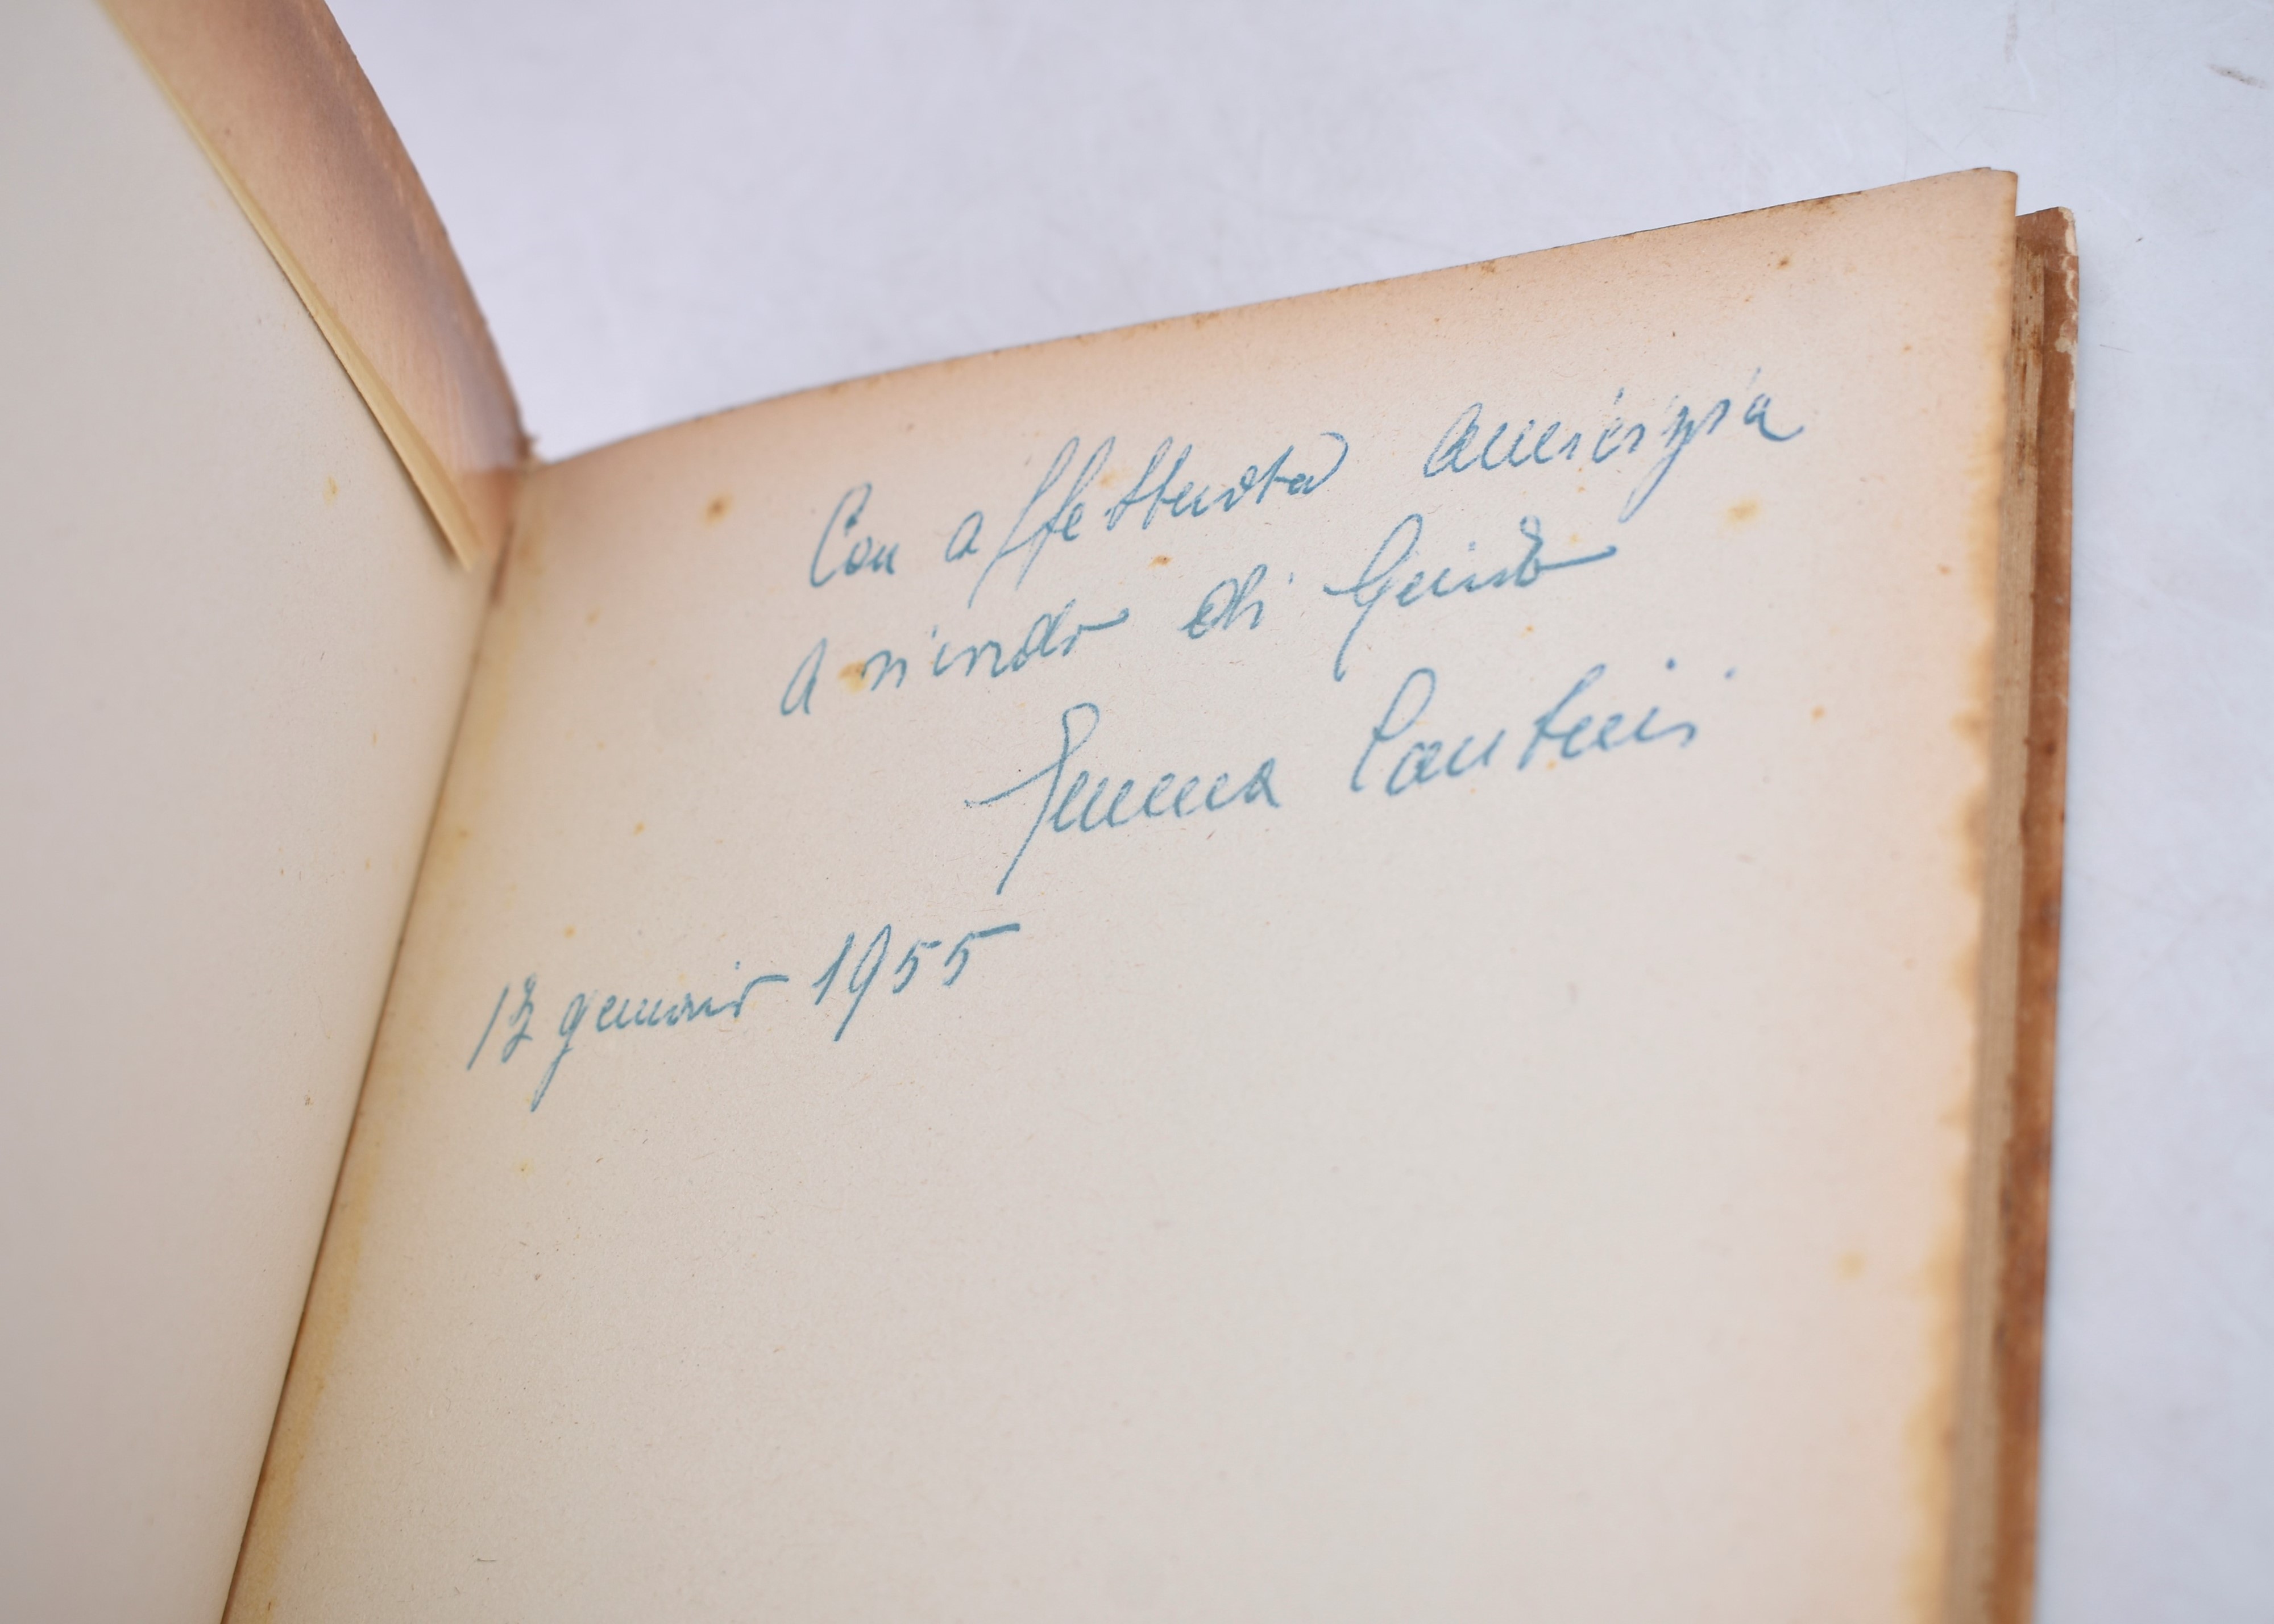 Con affettuosa amicizia
a ricordo di Guido
Gemma Cantini
13 gennaio 1955